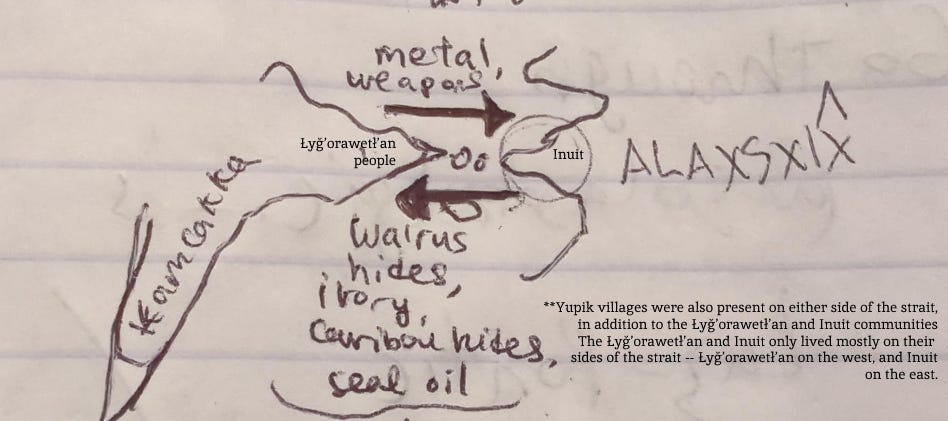 metal,
weapons,
Łyğ’orawetł’an
people
Inuit
ALAXSXIX̂
Kamcatka
Walrus
hides,
ivory,
Caribou hides,
seal oil
**Yupik villages were also present on either side of the strait,
in addition to the Łyğ’orawetł’an and Inuit communities
The Łyğ’orawetł’an and Inuit only lived mostly on their
sides of the strait -- Łyğ’orawetł’an on the west, and Inuit
on the east.